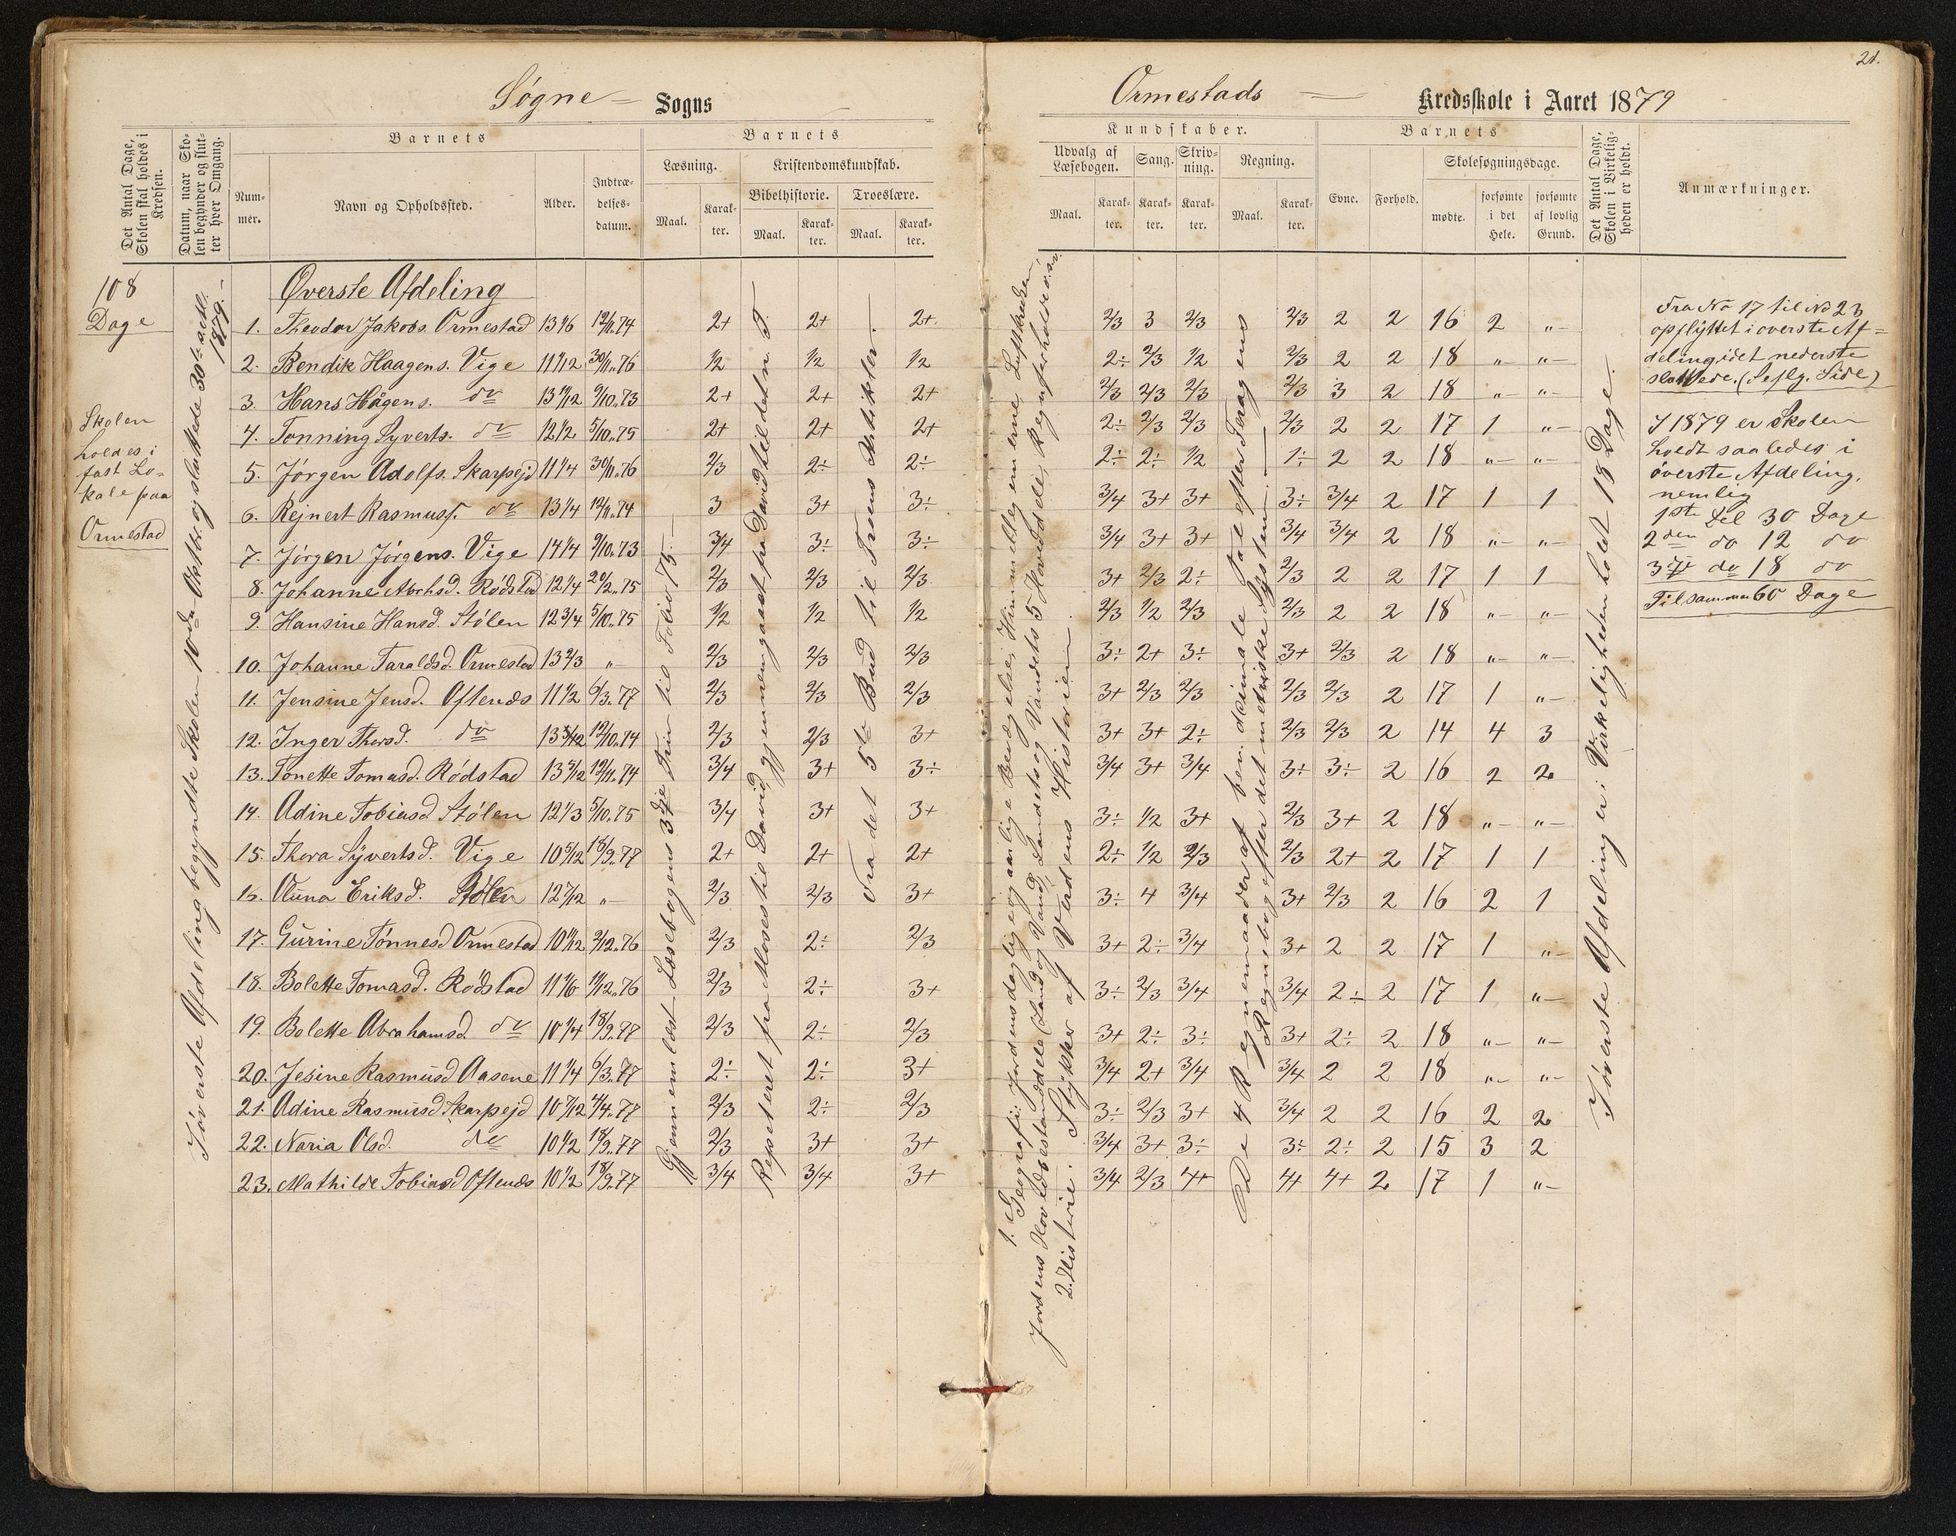 21.
Søgne Sogns
Ormestads Kredsskole i Aaret 1879
Det Antal Dage, Skolen skal holdes i Kredsen.
Datum, naar Skolen begynder og slutter hver Omgang.
Barnets
Nummer.
Navn og Opholdssted.
Alder.
Indtrædelsesdatum.
Barnets
Læsning.
Maal.
Karakter.
Kristendomskundskab.
Bibelhistorie.
Maal.
Karakter.
Troeslære.
Maal.
Karakter.
Kundskaber.
Udvalg af Læsebogen.
Maal.
Karakter.
Sang.
Karakter.
Skrivning.
Karakter.
Regning.
Maal.
Karakter.
Barnets
Evne.
Forhold.
Skolesøgningsdage.
mødte.
forsømte i det Hele.
forsømte af lovlig Grund.
Det Antal Dage, Skolen i Virkeligheden er holdt.
Anmærkninger.
108
Dage
Skolen
holdes i
fast Lo-
kale paa
Ormestad
I øverste Afdeling begyndte Skolen 10de Oktbr. og sluttede 30te actb.
1879.-
Øverste Afdeling
1. Theodor Jakobs. Ormestad 13 1/6 12/11.74 2+ 2+ 2+ 2/3 3 2/3 2/3 2 2 16 2 "
2. Bendik Haagens. Vige 11 1/12 30/11.76 1/2 1/2 1/2 2÷ 2/3 1/2 2/3 2 2 18 " "
3. Hans Hågens. do 13 11/12 9/10.73 2+ 2+ 2+ 2/3 2/3 2/3 2/3 3 2 18 " "
4. Tønning Syverts. do 12 1/2 5/10.75 2+ 2+ 2+ 2÷ 2/3 2/3 2/3 2 2 17 1 "
5. Jørgen Adolfs. Skarpejd 11 1/4 30/11.76 2/3 2÷ 2÷ 2÷ 2÷ 1/2 1÷ 2 2 18 " "
6. Rejnert Rasmuss. do 13 1/4 12/11.74 3 3+ 3÷ 3/4 3+ 3+ 3÷ 3/4 2 17 1 1
7. Jørgen Jørgens. Vige 14 1/4 9/10.73 3/4 3÷ 3÷ 3/4 3+ 3+ 3/4 3/4 2 18 " "
8. Johanne Abrhsd. Rødstad 12 1/4 20/2.75 2/3 2/3 2/3 3+ 2/3 2÷ 2/3 2 2 17 1 1
9. Hansine Hansd. Stølen 12 3/4 5/10.75 1/2 1/2 1/2 2/3 1/2 2/3 2/3 2 2 18 " "
10. Johanne Taraldsd. Ormestad 13 2/3 " 2/3 2/3 2/3 3÷ 2+ 3÷ 3+ 2/3 2 18 " "
11. Jensine Jensd. Oftenæs 11 1/2 6/3.77 2/3 2/3 2/3 3+ 2/3 2/3 2/3 2/3 2 17 1 "
12. Inger Thorsd. do 13 5/12 12/10.74 2/3 2/3 3+ 3+ 3+ 2÷ 2/3 2/3 2 14 4 3
13. Tonette Tomasd. Rødstad 13 5/12 12/11.74 3/4 3+ 3÷ 3/4 3+ 3/4 3÷ 3÷ 2 16 2 2
14. Adine Tobiasd Stølen 12 1/3 5/10.75 3/4 3+ 3+ 3÷ 1/2 3+ 2/3 3+ 2 18 " "
15. Thora Syvertsd. Vige 10 5/12 18/9.77 2+ 2+ 2+ 2÷ 1/2 2/3 2/3 2+ 2 17 1 1
16. Anna Eriksd. Stølen 12 7/12 " 2/3 2/3 3+ 3÷ 4 3/4 3+ 2/3 2 16 2 1
17. Gurine Tønnesd Ormestad 10 11/12 2/12.76 2/3 2÷ 2/3 3+ 2÷ 3/4 3+ 2 2 17 1 "
18. Bolette Tomasd. Rødstad 11 1/6 1/12.76 2/3 2÷ 3+ 3÷ 2/3 3/4 3/4 2÷ 2 17 1 "
19. Bolette Abrahamsd. do 10 1/4 18/9.77 2/3 2÷ 2/3 3+ 2÷ 3÷ 3+ 2÷ 2 18 " "
20. Jesine Rasmusd Aasene 11 1/4 6/3.77 2÷ 2÷ 3+ 3/4 2+ 3/4 3/4 2 2 18 " "
21. Adine Rasmusd. Skarpejd 10 7/12 4/4.77 2/3 2÷ 2/3 3÷ 2/3 3+ 3/4 2 2 16 2 2
22. Naria Olsd. do 10 1/2 18/9.77 2/3 3+ 3+ 3/4 3+ 3÷ 3÷ 2÷ 2 15 3 2
23. Mathilde Tobiasd Oftenæs 10 1/2 18/9.77 3/4 3/4 3+ 3/4 2/3 4+ 4+ 4+ 2 17 1 "
Gjennemlæst Læsebogens 3die Trin til Folio 75.
Repeteret fra Moses til David, gjennemgaaet fra David til
Fra det 5te Bud til Troens Artikler.
1. Geografi: Jordens daglig og aarlige Bevægelse, Himmellegemerne, Luftkredsen,
Jordens Hovedbestanddele (Land og Vand), Landets og Vandets 5 Hoveddele, Regnforholde o.s.v.
2. Historie: Stykker af Verdens Historien.
De 4 Regnemaader af ben. decimale Tal efter Feragens
Regnebog efter det metriske System.
I øverste Afdeling er i Virkeligheden holdt 18 Dage.
Fra No 17 til No 23
opflyttet i øverste Af-
deling idet nederste
sluttede. (Seflg. Side)
I 1879 er Skolen
holdt saaledes i
øverste Afdeling,
nemlig
1ste Del 30 Dage
2den do 12 do
3die do 18 do
Tilsammen 60 Dage